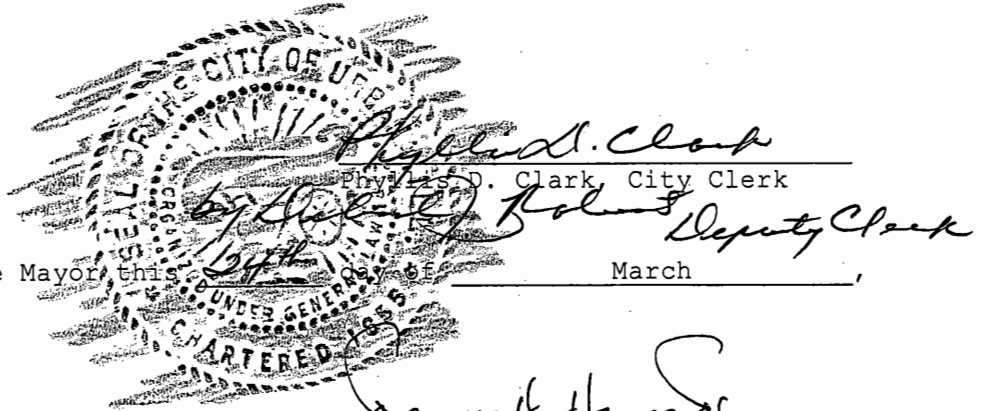 SEAL OF THE CITY OF
ORGANIZED UNDER GENERAL LAW
CHARTERED 1855
Phyllis D. Clark
Phyllis D. Clark, City Clerk
by Robert Deputy Clerk
e Mayor this 24th day of March,